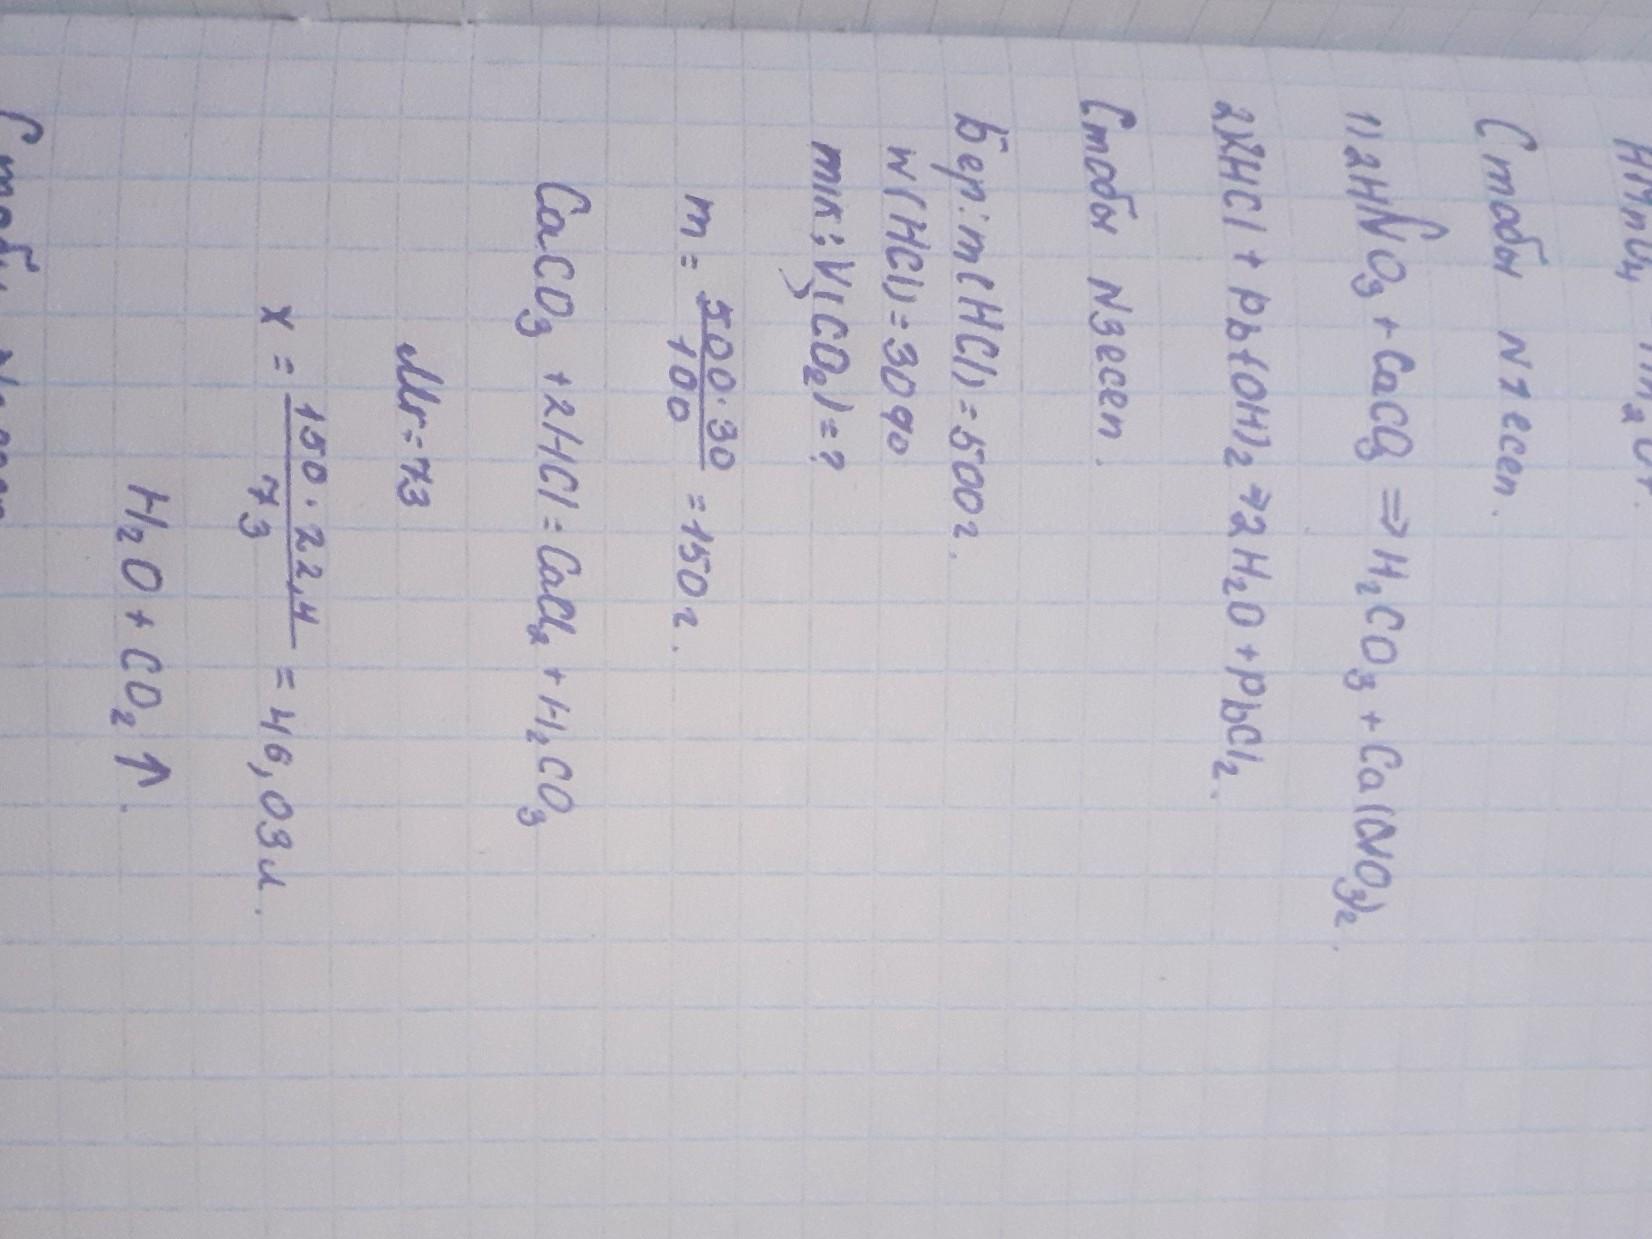 Стобы N1 есеп.
1) 2HNO3 + CaCO3 => H2CO3 + Ca(NO3)2.
2) 2HCl + Pb(OH)2 → 2H2O + PbCl2.
Стобы N3 есеп.
Бер: m(HCl) = 500г.
w(HCl) = 30%
т/к: V(CO2) = ?
m = 500·30/100 = 150г.
CaCO3 + 2HCl = CaCl2 + H2CO3
Mr = 73
x = 150·22,4/73 = 46,03л.
H2O + CO2↑.